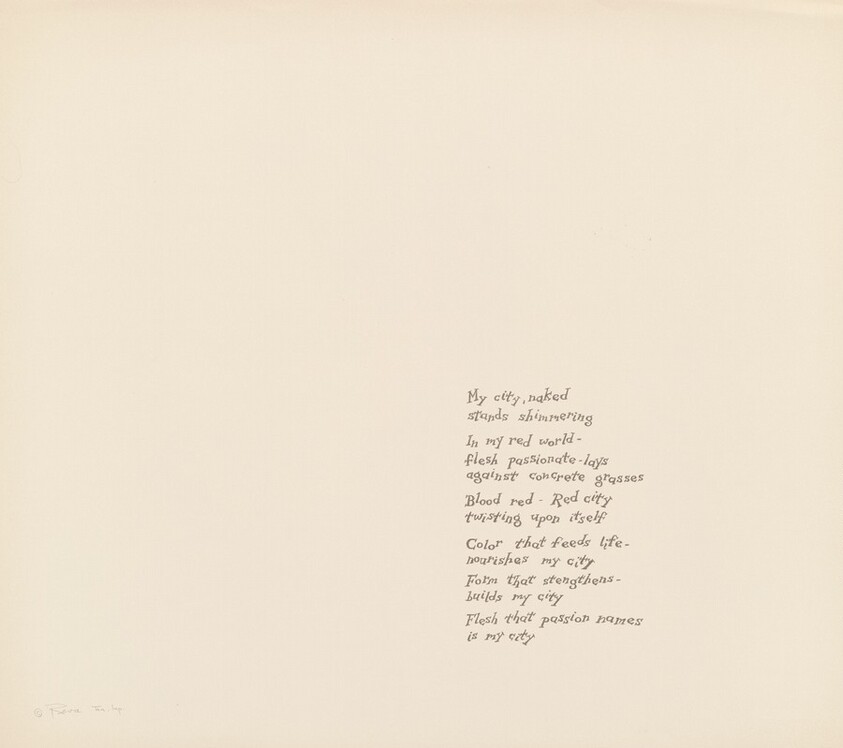 My city, naked
stands shimmering
In my red world-
flesh passionate-lays
against concrete grasses
Blood red - Red city
twisting upon itself
Color that feeds life-
nourishes my city
Form that stengthens-
builds my city
Flesh that passion names
is my city